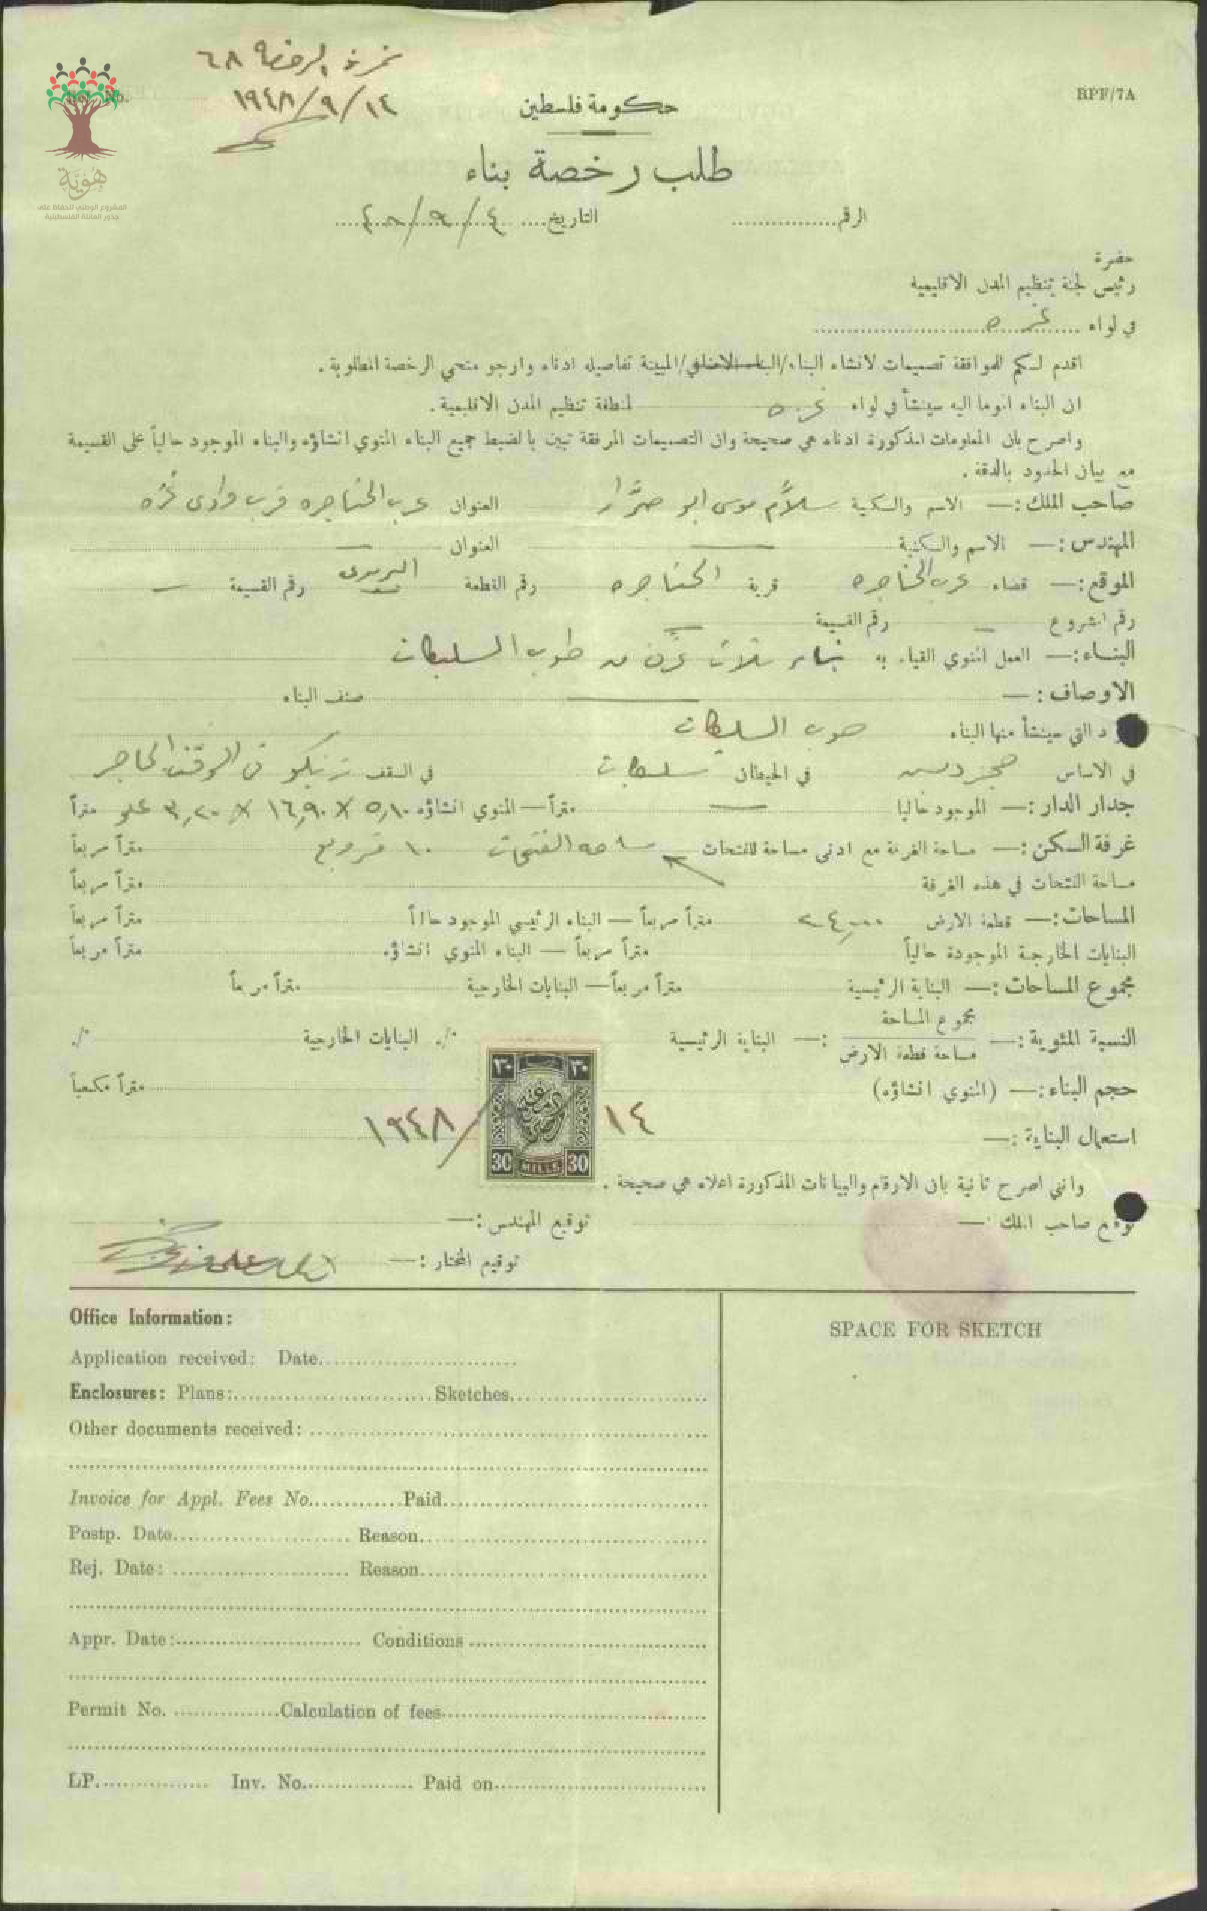 نمرة الرخصة ٦٨
١٩٤٨/٩/١٤
No.
RPF/7A
هوية
المشروع الوطني للحفاظ على
جذور العائلة الفلسطينية
حكومة فلسطين
طلب رخصة بناء
الرقم ............... التاريخ .... ٤٨/٩/٤
حضرة
رئيس لجنة تنظيم المدن الاقليمية
في لواء غزه
اقدم لكم للموافقة تصميمات لانشاء البناء/البناء الاضافي/المبينة تفاصيله ادناه وارجو منحي الرخصة المطلوبة .
ان البناء المومأ اليه سينشأ في لواء غزه لمنطقة تنظيم المدن الاقليمية .
واصرح بان المعلومات المذكورة ادناه هي صحيحة وان التصميمات المرفقة تبين بالضبط جميع البناء المنوي انشاؤه والبناء الموجود حالياً على القسيمة
مع بيان الحدود بالدقة .
صاحب الملك :— الاسم والكنية سلام موسى ابو صرار العنوان عرب الحناجره قرب وادى غزه
المهندس :— الاسم والكنية — العنوان —
الموقع :— قضاء عرب الحناجره قرية الحناجره رقم القطعة رقم القسيمة —
رقم المشروع — رقم القسيمة —
البناء :— العمل المنوي القيام به بناء ثلاث غرف من طوب السليكات
الاوصاف :— صنف البناء
المواد التي سينشأ منها البناء طوب السليكات
في الاساس في الحيطان سليكات في السقف زينكو في الوقت الحاضر
جدار الدار :— الموجود حاليا — متراً — المنوي انشاؤه ٥,١٠ × ١٦,٩٠ × ٣,٢٠ علو متراً
غرفة السكن :— مساحة الغرفة مع ادنى مساحة للفتحات مساحه الفتحات ١٠ متراً مربعاً
مساحة الفتحات في هذه الغرفة متراً مربعاً
المساحات :— قطعة الارض متراً مربعاً — البناء الرئيسي الموجود حالاً متراً مربعاً
البنايات الخارجية الموجودة حالياً متراً مربعاً — البناء المنوي انشاؤه متراً مربعاً
مجموع المساحات :— البناية الرئيسية متراً مربعاً — البنايات الخارجية متراً مربعاً
النسبة المئوية :— مجموع المساحة / مساحة قطعة الارض :— البناية الرئيسية ٠/. البنايات الخارجية ٠/.
حجم البناء :— (المنوي انشاؤه) متراً مكعباً
٣٠ ٣٠
30 MILLS 30
١٤ / ١٩٤٨
استعمال البناية :—
وانني اصرح ثانية بان الارقام والبيانات المذكورة اعلاه هي صحيحة .
توقيع صاحب الملك :— توقيع المهندس :—
توقيع المختار :—
Office Information:
Application received: Date
Enclosures: Plans: Sketches
Other documents received:
Invoice for Appl. Fees No. Paid
Postp. Date Reason
Rej. Date: Reason
Appr. Date: Conditions
Permit No. Calculation of fees
LP. Inv. No. Paid on
SPACE FOR SKETCH